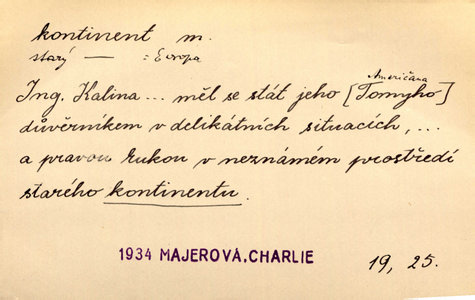 kontinent m.
starý — = Evropa
Američana
Ing. Kalina ... měl se stát jeho [Tomyho]
důvěrníkem v delikátních situacích, ...
a pravou rukou v neznámém prostředí
starého kontinentu.
1934 MAJEROVÁ, CHARLIE
19, 25.